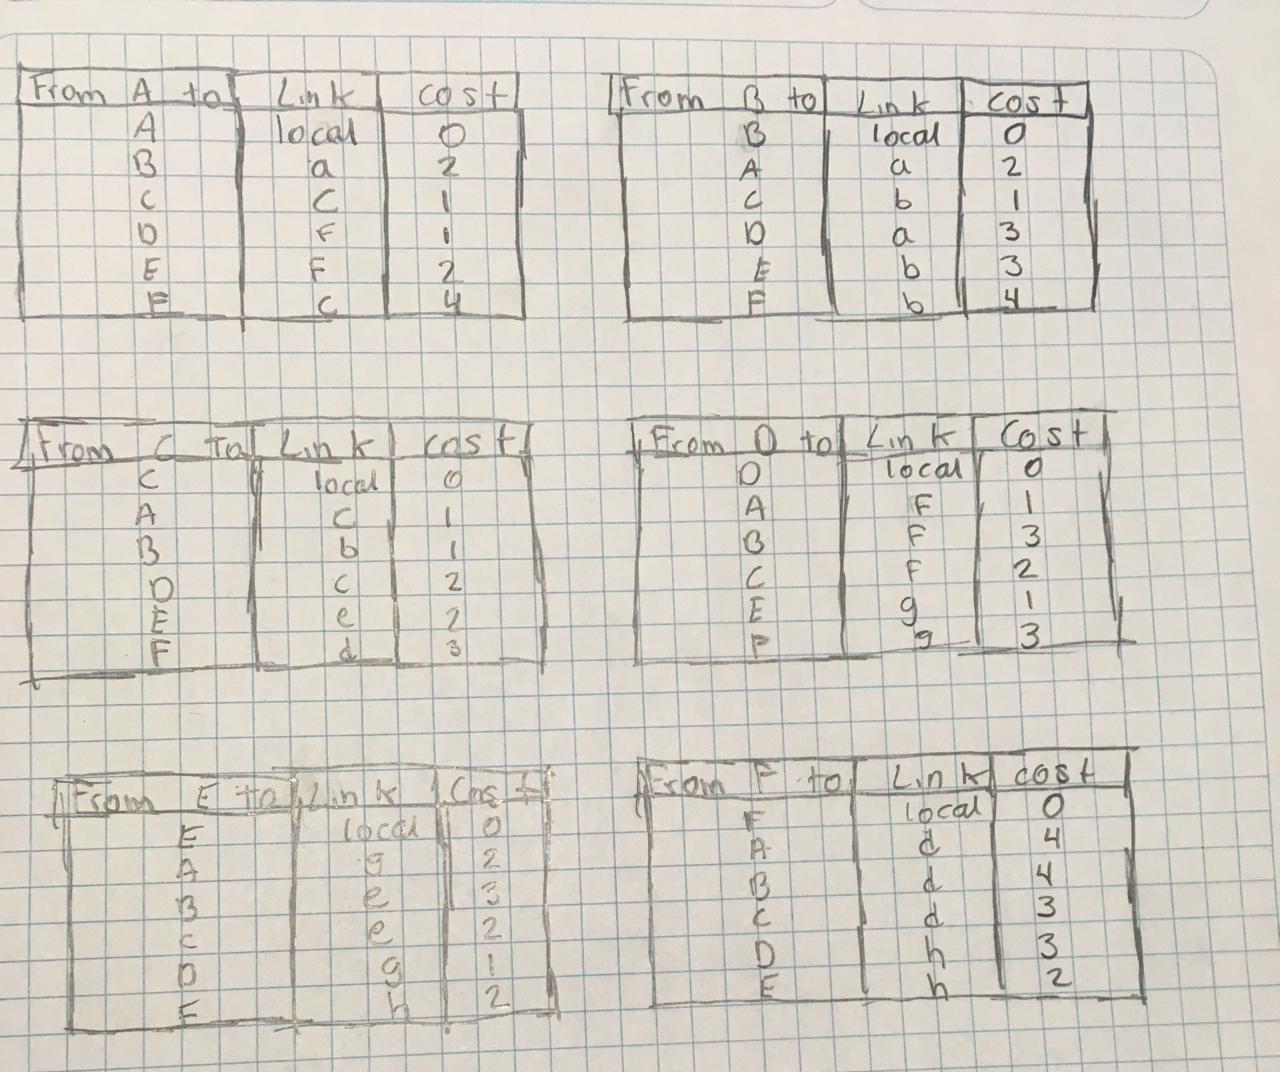 From A to Link cost
A local 0
B a 2
C C 1
D F 1
E F 2
F C 4
From B to Link cost
B local 0
A a 2
C b 1
D a 3
E b 3
F b 4
From C to Link cost
C local 0
A C 1
B b 1
D c 2
E e 2
F d 3
From D to Link Cost
D local 0
A F 1
B F 3
C F 2
E g 1
F g 3
From E to Link Cost
E local 0
A g 2
B e 3
C e 2
D g 1
F h 2
From F to Link cost
F local 0
A d 4
B d 4
C d 3
D h 3
E h 2